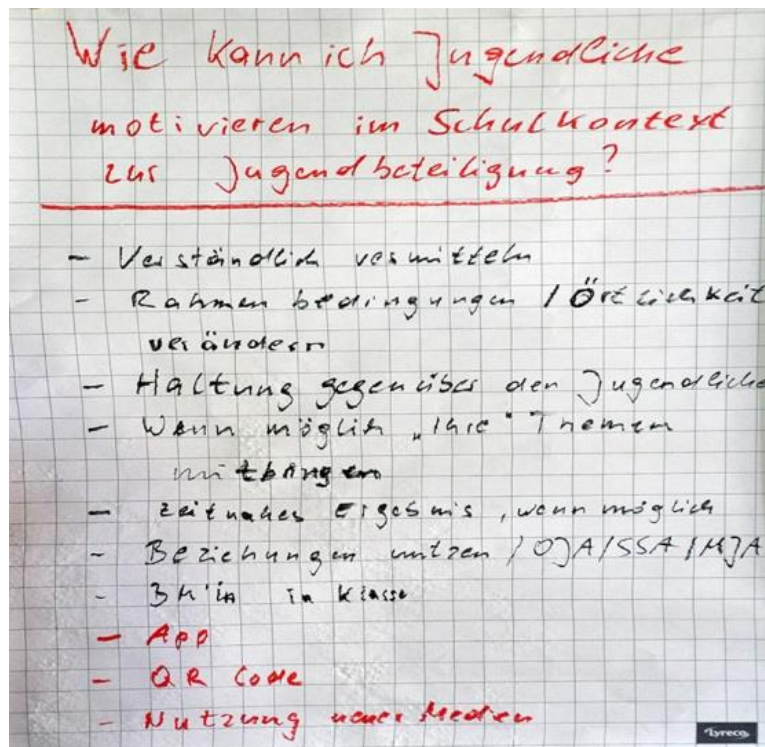 Wie kann ich Jugendliche
motivieren im Schulkontext
zur Jugendbeteiligung?
- Verständlich vermitteln
- Rahmenbedingungen / Örtlichkeit
verändern
- Haltung gegenüber den Jugendliche
- Wenn möglich "Ihre" Themen
mitbringen
- zeitnahes Ergebnis, wenn möglich
- Beziehungen nutzen / OJA/SSA/MJA
- BM'in in Klasse
- App
- QR Code
- Nutzung neuer Medien
Lyreco